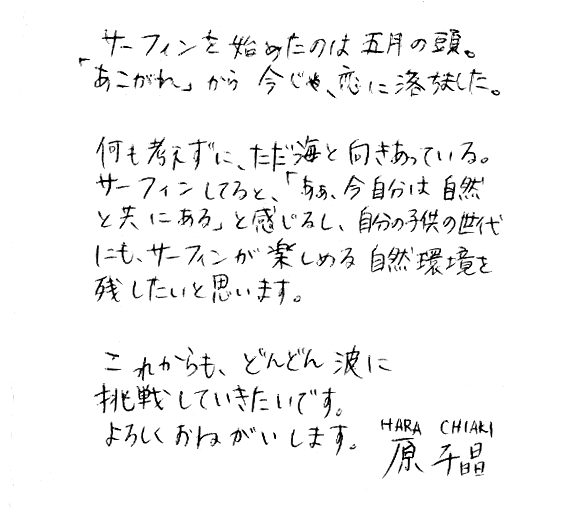 サーフィンを始めたのは五月の頭。
「あこがれ」から今じゃ、恋に落ちました。
何も考えずに、ただ海と向きあっている。
サーフィンしてると、「あぁ、今自分は自然
と共にある」と感じるし、自分の子供の世代
にも、サーフィンが楽しめる自然環境を
残したいと思います。
これからも、どんどん波に
挑戦していきたいです。
よろしくおねがいします。
HARA CHIAKI
原 千晶